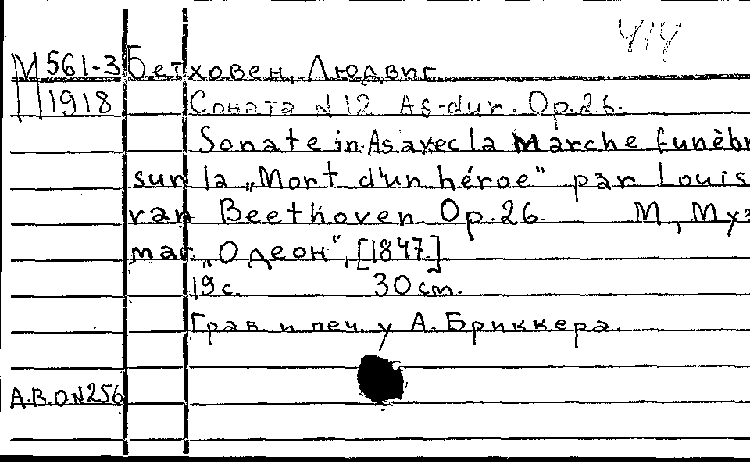 414
М 561-3 Бетховен, Людвиг
1918 Соната N 12 As-dur. Op. 26.
Sonate in As avec la Marche funèbr
sur la „Mort d'un héroe" par Louis
van Beethoven Op. 26 М, Муз
маг. „Одеон", [1847.]
19 с. 30 cm.
Грав. и печ. у А. Бриккера.
А.В.О N 256